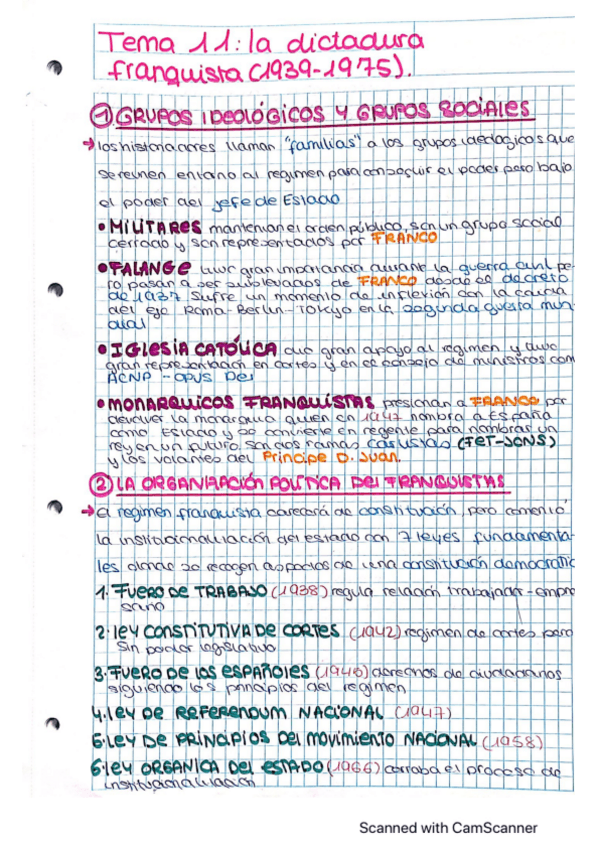 Tema 11: la dictadura
franquista (1939-1975).
① GRUPOS IDEOLÓGICOS Y GRUPOS SOCIALES
→ los historiadores llaman "familias" a los grupos ideologicos que
se reunen entorno al regimen para conseguir el poder pero bajo
el poder del jefe de Estado
• MILITARES mantenian el orden público, son un grupo social
cerrado y son representados por FRANCO
• FALANGE tuvo gran importancia durante la guerra civil pe-
ro pasan a ser sublevados de FRANCO desde el decreto
de 1937 Sufre un momento de inflexión con la caida
del eje Roma-Berlin-Tokyo en la segunda guerra mun-
dial
• IGLESIA CATÓLICA dio gran apoyo al regimen y tuvo
gran representación en cortes y en el consejo de ministros con
ACNP - OPUS Dei
• MONARQUICOS FRANQUISTAS presionan a FRANCO por
devolver la monarquia quien en 1947 nombra a España
como Estado y se convierte en regente para nombrar un
rey en un futuro. Son dos ramas carlistas (FET-JONS)
y los volantes del Principe D. Juan.
② LA ORGANIZACIÓN POLITICA DEL FRANQUISTAS
→ El regimen franquista carecerá de constitución, pero comenzó
la institucionalización del estado con 7 leyes fundamenta-
les donde se recogen aspectos de una constitución democratic
1. FUERO DE TRABAJO (1938) regula relación trabajador-empre
sario
2. ley CONSTITUTIVA DE CORTES (1942) regimen de cortes pero
sin poder legislativo
3. FUERO DE LOS ESPAÑOLES (1945) derechos de ciudadanos
siguiendo los principios del regimen
4. LEY DE REFERENDUM NACIONAL (1947)
5. LEY DE PRINCIPIOS DEL MOVIMIENTO NACIONAL (1958)
6. ley ORGANICA DEL ESTADO (1966) corroba el proceso de
institucionalización
Scanned with CamScanner